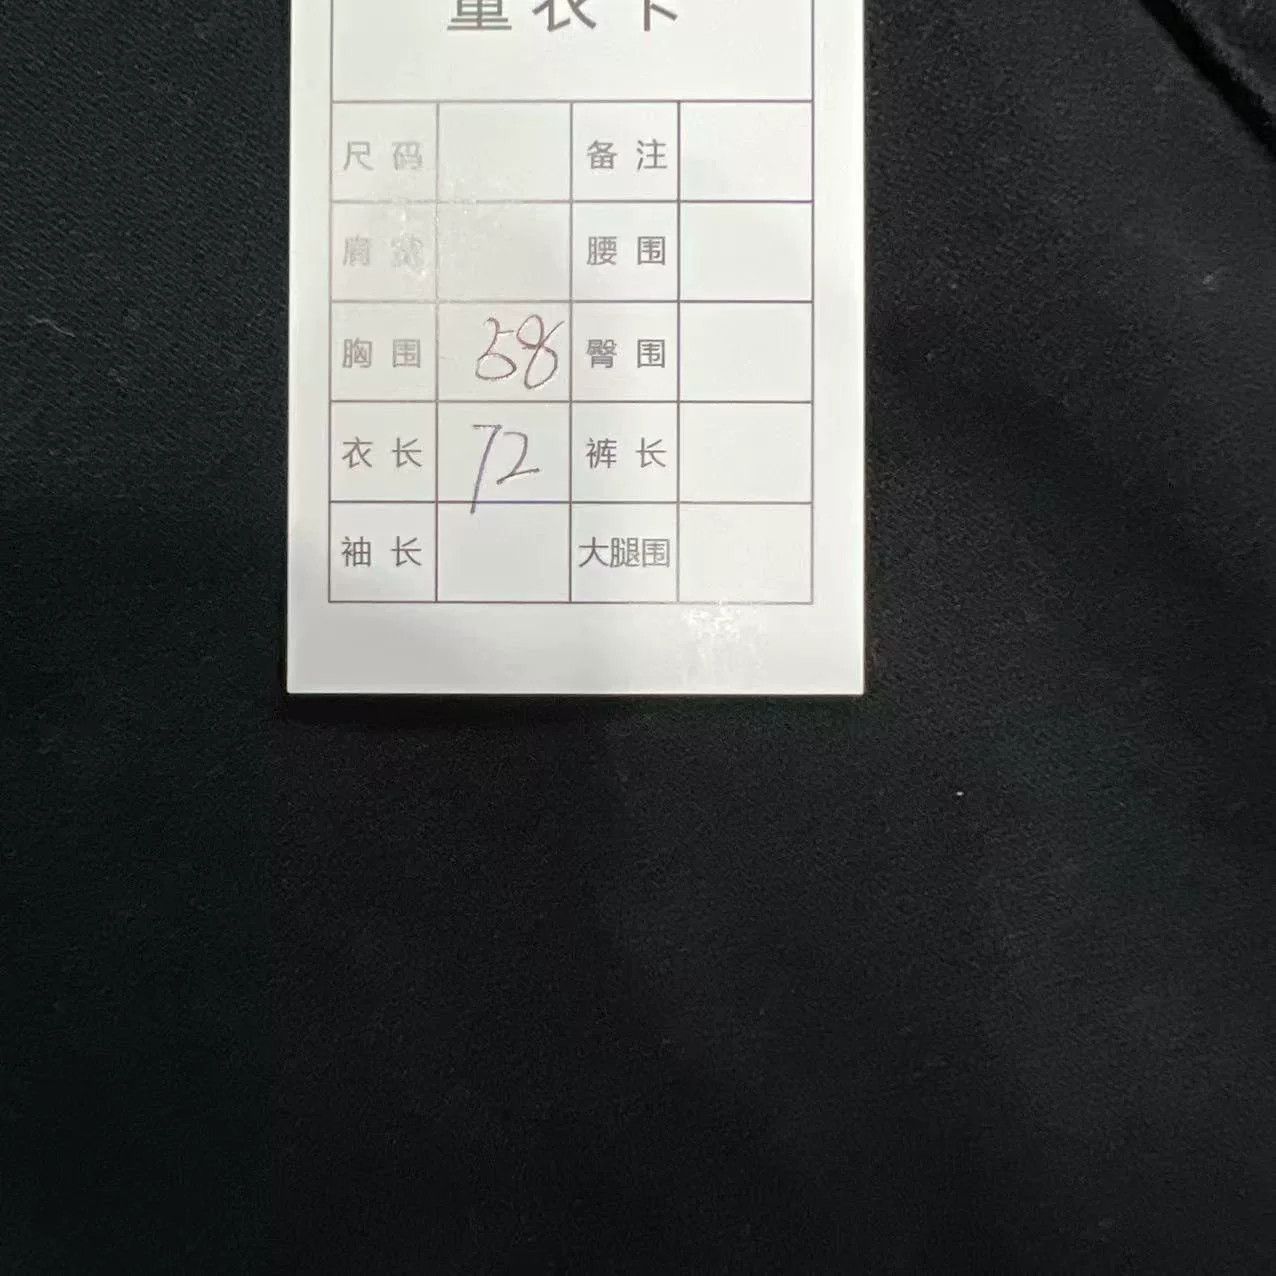 量衣卡
尺码 备注
肩宽 腰围
胸围 58 臀围
衣长 72 裤长
袖长 大腿围